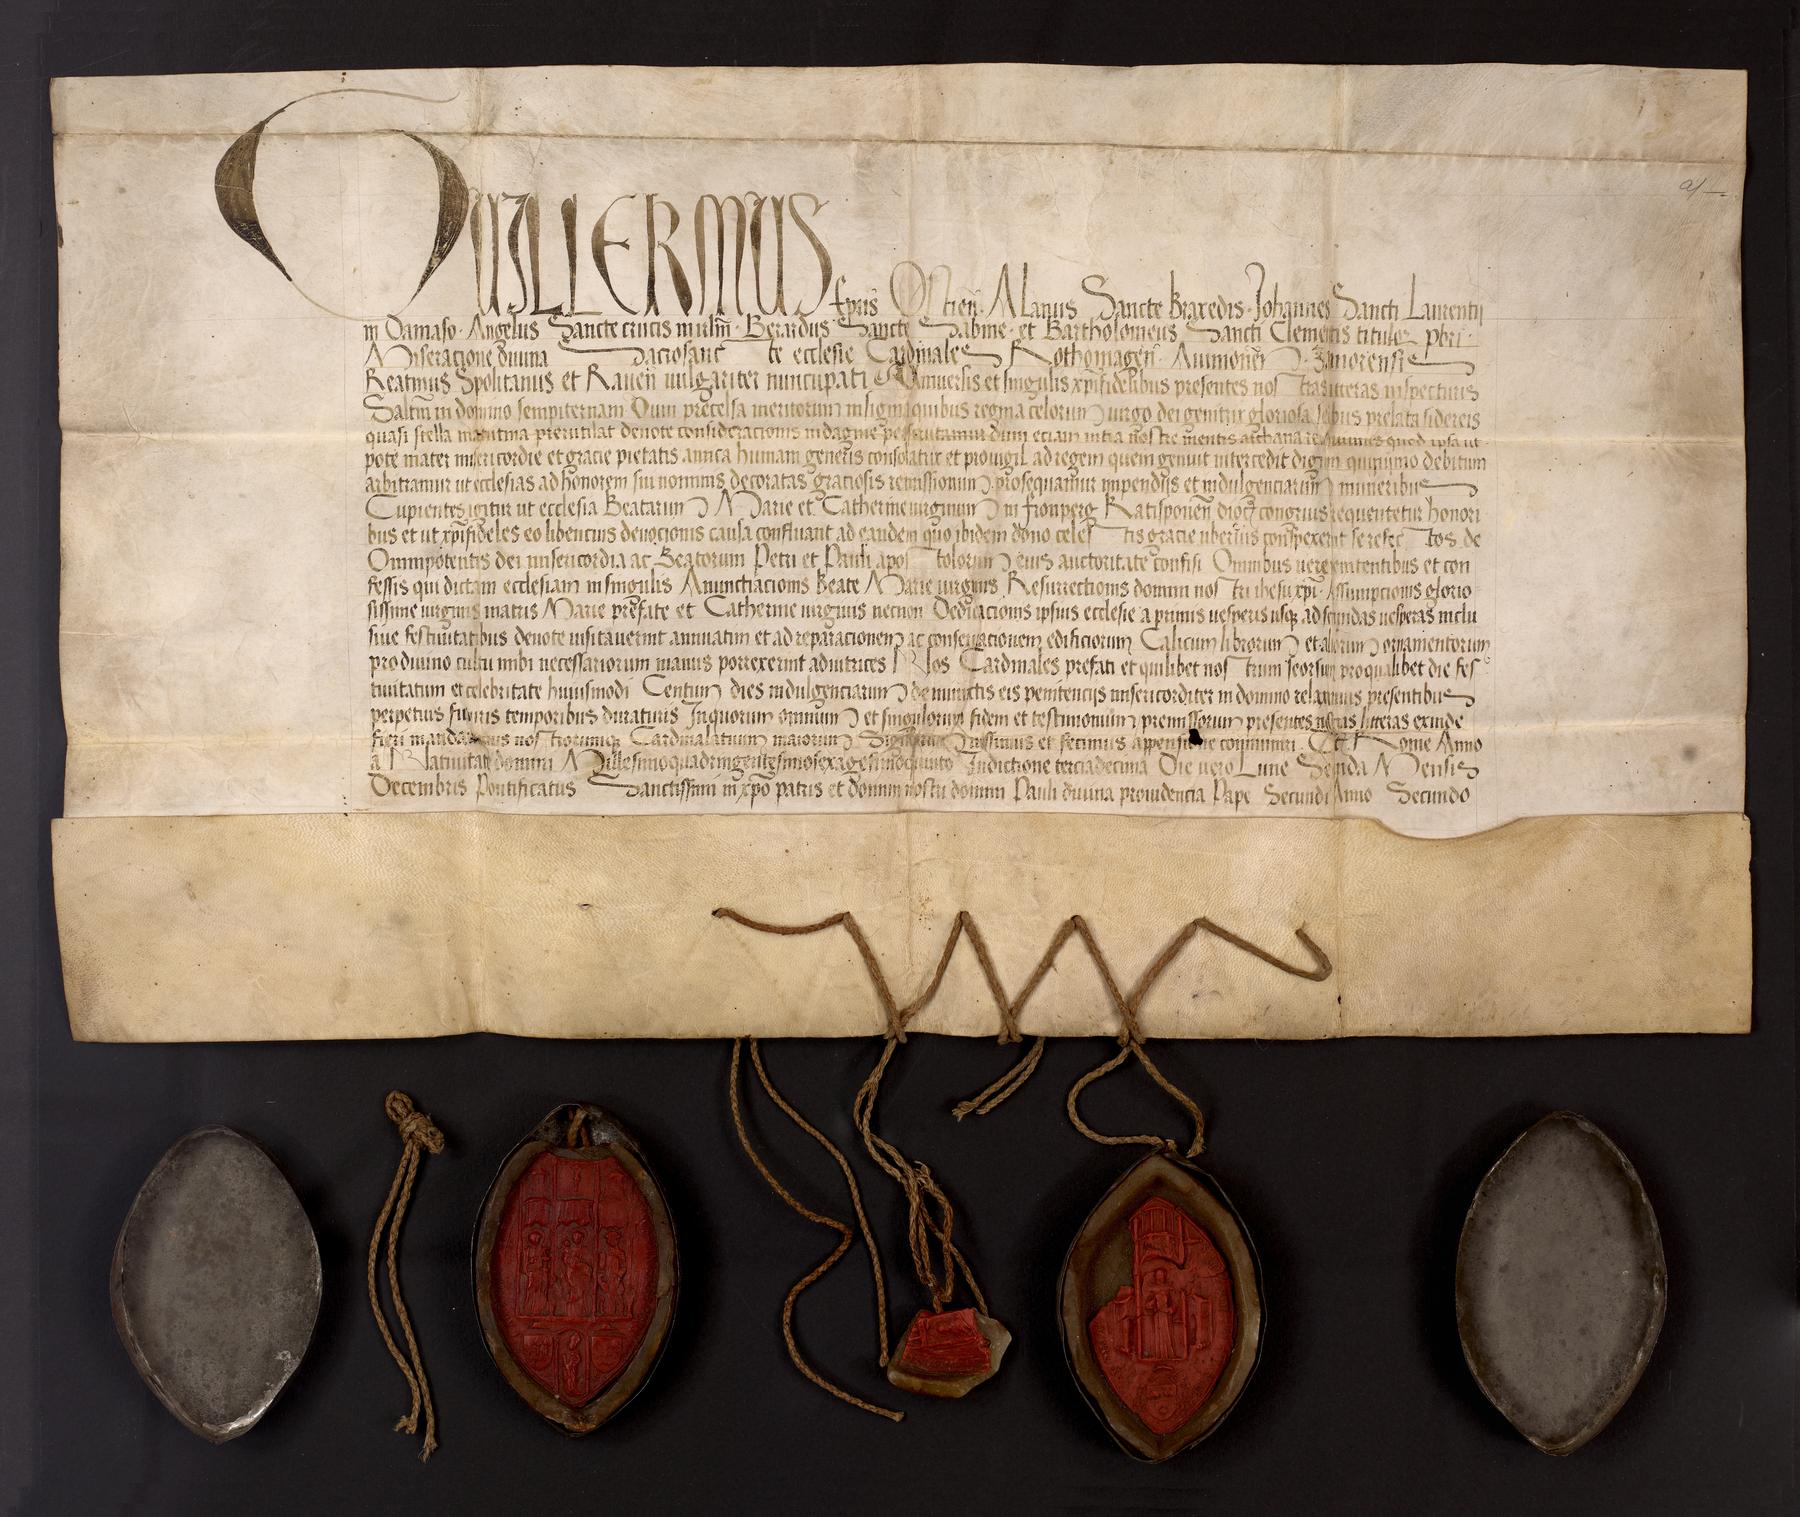 GUILLERMUS epus Ostien̄ · Alanus Sancte Praxedis · Johannes Sancti Laurentii
in Damaso · Angelus Sancte crucis in irlm̄ · Berardus Sancte Sabine · et Bartholomeus Sancti Clementis titulor pbri ·
Miseracione divina Sacrosancte ecclesie Cardinales Rothomagen̄ · Avinionen̄ · Zamorensis
Reatinus Spolitanus et Raven̄ vulgariter nuncupati Universis et singulis xp̄ifidelibus presentes nostras litteras inspecturis
Saltm̄ in domino sempiternam Qum precelsa meritorum insignia quibus regina celorum virgo dei genitrix gloriosa sedibus prelata sidereis
quasi stella matutina prerutilat devote consideracionis indagine perscrutamur dum eciam intra nostre mentis archana revolvimus quod ipsa ut
pote mater misericordie et gracie pietatis amica humani generis consolatrix et pro vigil ad regem quem genuit intercedit dignum quinimo debitum
arbitramur ut ecclesias ad honorem sui nominis decoratas graciosis remissionum prosequamur impendiis et indulgenciarum muneribus
Cupientes igitur ut ecclesia Beatarum Marie et Catherine virginum in fronperg Ratisponen̄ dioc̄ congruis frequentetur honori
bus et ut xp̄ifideles eo libencius devocionis causa confluant ad eandem quo ibidem dono celestis gracie uberius conspexerint se refectos de
Omnipotentis dei misericordia ac Beatorum Petri et Pauli apostolorum eius auctoritate confisi Omnibus vere penitentibus et con
fessis qui dictam ecclesiam in singulis Anunctiacionis beate Marie virginis Resurrectionis domini nostri ihesu xp̄i · Assumpcionis glorio
sissime virginis matris Marie prefate et Catherine virginis necnon Dedicacionis ipsius ecclesie a primis vesperis usq ad secundas vesperas inclu
sive festivitatibus devote visitaverint annuatim et ad reparacionem ac conservacionem edificiorum Calicum librorum et aliorum ornamentorum
pro divino cultu inibi necessariorum manus porrexerint adiutrices Nos Cardinales prefati et quilibet nostrum seorsum pro qualibet die fes
tivitatum et celebritate huiusmodi Centum dies indulgenciarum de iniunctis eis penitencijs misericorditer in domino relaxamus presentibus
perpetuis futuris temporibus duraturis In quorum omnium et singulorum fidem et testimonium premissorum presentes nostras litteras exinde
fieri mandavimus nostrorumq Cardinalatuum maiorum Sigillorum iussimus et fecimus appensione communiri · Dat Rome Anno
a Nativitate domini Millesimoquadringentesimosexagesimoquinto Indictione terciadecima Die vero Lune Secunda Mensis
Decembris Pontificatus Sanctissimi in xp̄o patris et domini nostri domini Pauli divina providencia Pape Secundi Anno Secundo